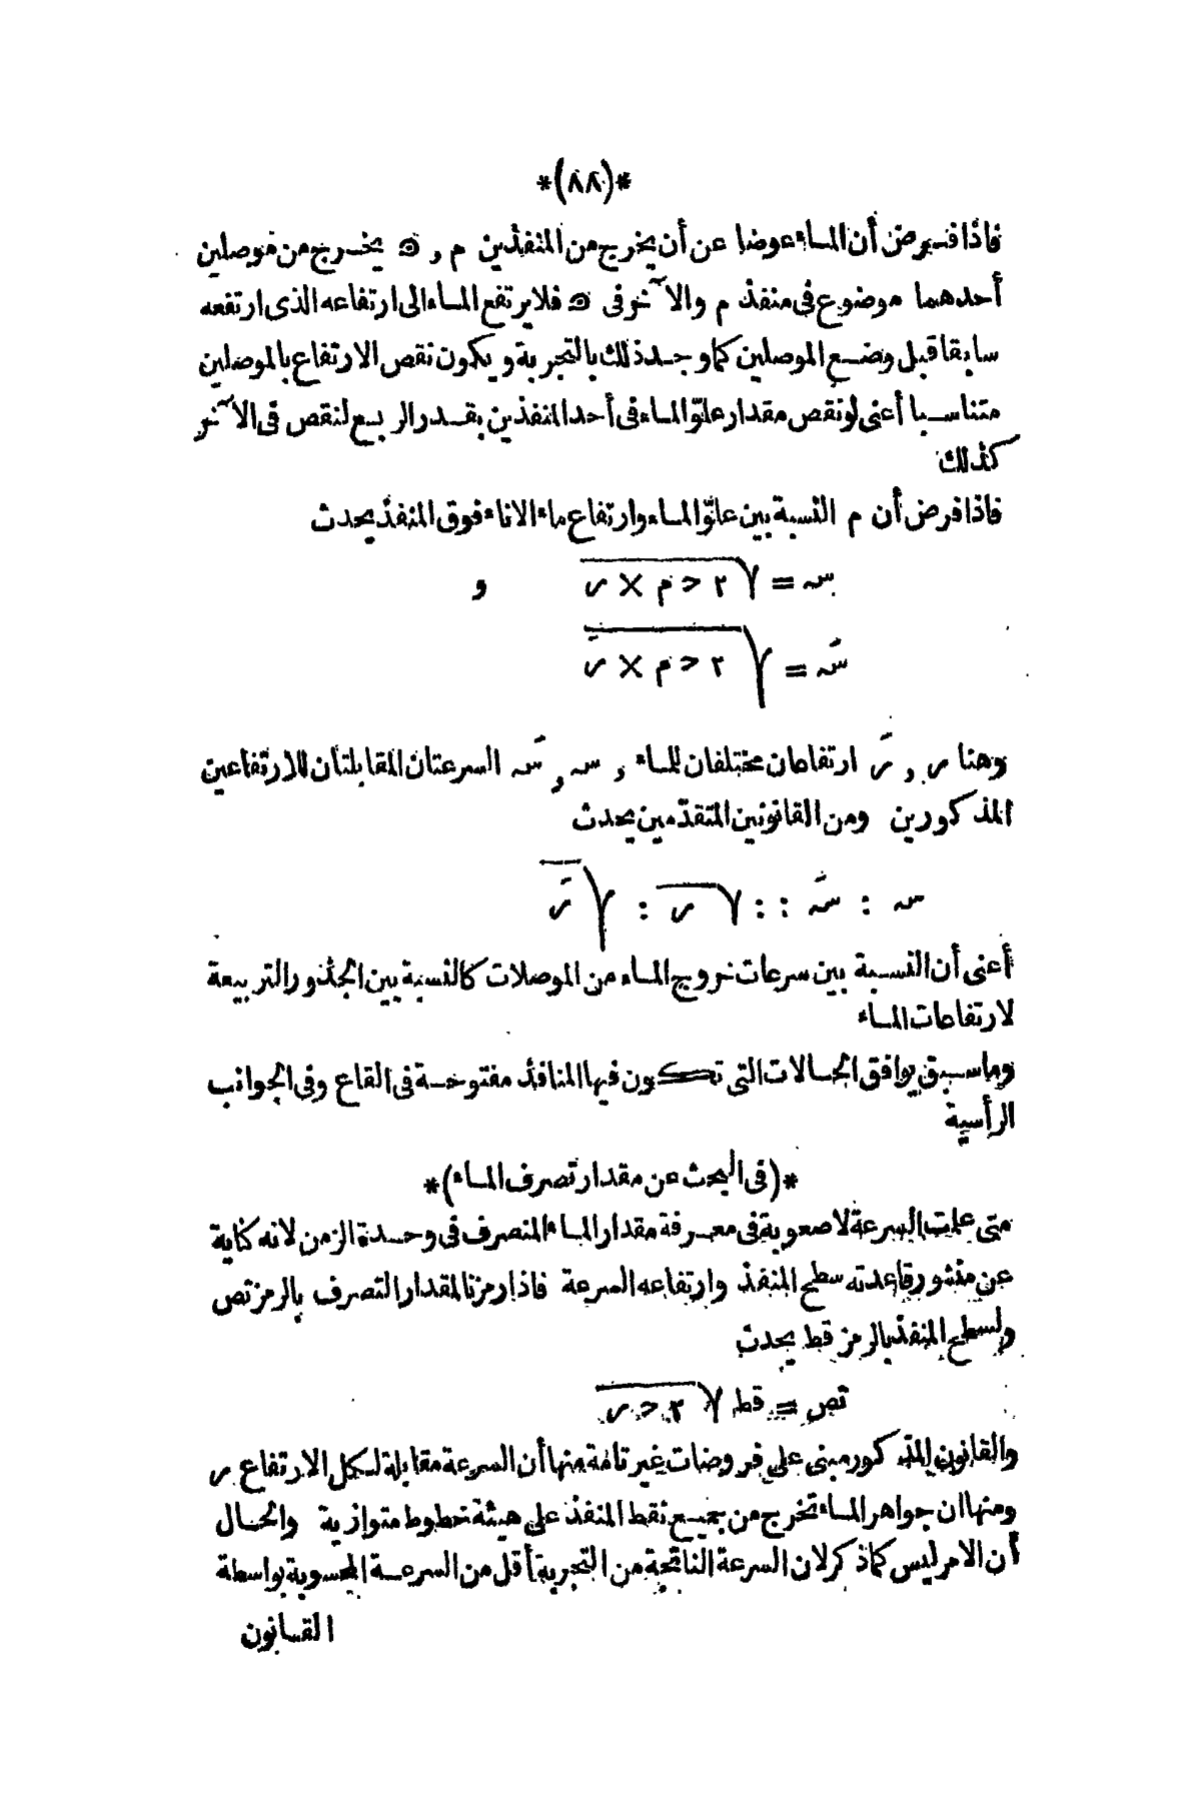 *(٨٨)*
فاذا فرض أن الماء عوضا عن أن يخرج من المنفذين م , ه يخرج من موصلين
أحدهما موضوع فى منفذ م والآخر فى ه فلا يرتفع الماء الى ارتفاعه الذى ارتفعه
سابقا قبل وضع الموصلين كما وجد ذلك بالتجربة ويكون نقص الارتفاع بالموصلين
متناسبا أعنى لو نقص مقدار علوّ الماء فى أحد المنفذين بقدر الربع لنقص فى الآخر
كذلك
فاذا فرض أن م النسبة بين علوّ الماء وارتفاع ماء الاناء فوق المنفذ يحدث
سـ = √٢ح م × ر و
سَـ = √٢ح م × رَ
وهنا ر , رَ ارتفاعان مختلفان للماء , سـ , سَـ السرعتان المقابلتان للارتفاعين
المذكورين ومن القانونين المتقدّمين يحدث
سـ : سَـ :: √ر : √رَ
أعنى أن النسبة بين سرعات خروج الماء من الموصلات كالنسبة بين الجذور التربيعة
لارتفاعات الماء
وما سبق يوافق الحالات التى تكون فيها المنافذ مفتوحة فى القاع وفى الجوانب
الرأسية
*(فى البحث عن مقدار تصرف الماء)*
متى علمت السرعة لا صعوبة فى معرفة مقدار الماء المنصرف فى وحدة الزمن لانه كناية
عن منشور قاعدته سطح المنفذ وارتفاعه السرعة فاذا رمزنا لمقدار التصرف بالرمز تص
ولسطح المنفذ بالرمز قط يحدث
تص = قط √٢ح ر
والقانون المذكور مبنى على فروضات غير تامّة منها أن السرعة مقابلة لكل الارتفاع ر
ومنها ان جواهر الماء تخرج من جميع نقط المنفذ على هيئة خطوط متوازية والحال
أن الامر ليس كما ذكر لان السرعة الناتجة من التجربة أقل من السرعة المحسوبة بواسطة
القانون